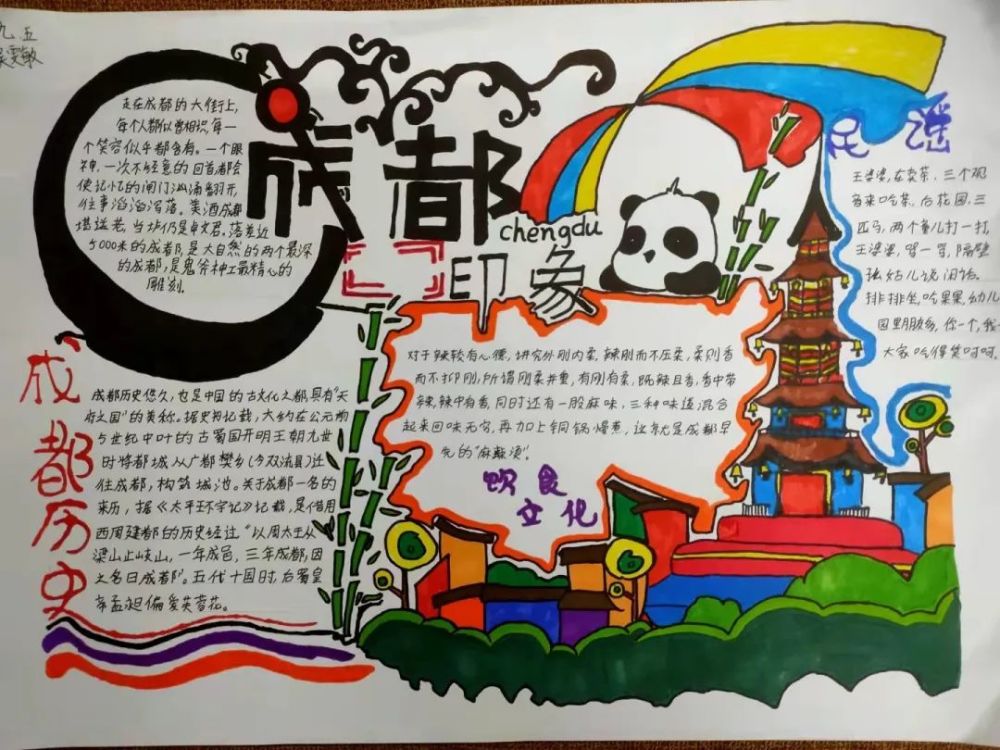 九.五
走在成都的大街上,
每个人都似曾相识,每一
个笑容似乎都含有。一个眼
神,一次不经意的回首都会
使记忆的闸门汹涌翻开,
往事滔滔泻落。美酒成都
堪送老,当垆仍是卓文君,落差近
5000米的成都,是大自然的两个最深
的成都,是鬼斧神工最精心的
雕刻.
成都
chengdu
印象
民谣
王婆婆,在卖茶,三个观
音来吃茶,后花园,三
匹马,两个童儿打一打,
王婆婆,骂一骂,隔壁
张姑儿说闲话。
排排坐,吃果果,幼儿
园里朋友多,你一个,我
大家吃得笑呵呵。
对于辣较有心德,讲究外刚内柔,辣刚而不压柔,柔则香
而不抑刚,所谓刚柔并重,有刚有柔,既辣且香,香中带
辣,辣中有香,同时还有一股麻味,三种味道混合
起来回味无穷,再加上铜锅慢煮,这就是成都早
先的“麻辣烫”。
饮食
文化
成都历史
成都历史悠久,也是中国的古文化之都,具有“天
府之国”的美称。据史书记载,大约在公元前
5世纪中叶的古蜀国开明王朝九世
时将都城从广都樊乡(今双流县)迁
往成都,构筑城池。关于成都一名的
来历,据《太平环宇记》记载,是借用
西周建都的历史经过“以周太王从
梁山止岐山,一年成邑,三年成都,因
之名曰成都”。五代十国时,后蜀皇
帝孟昶偏爱芙蓉花。